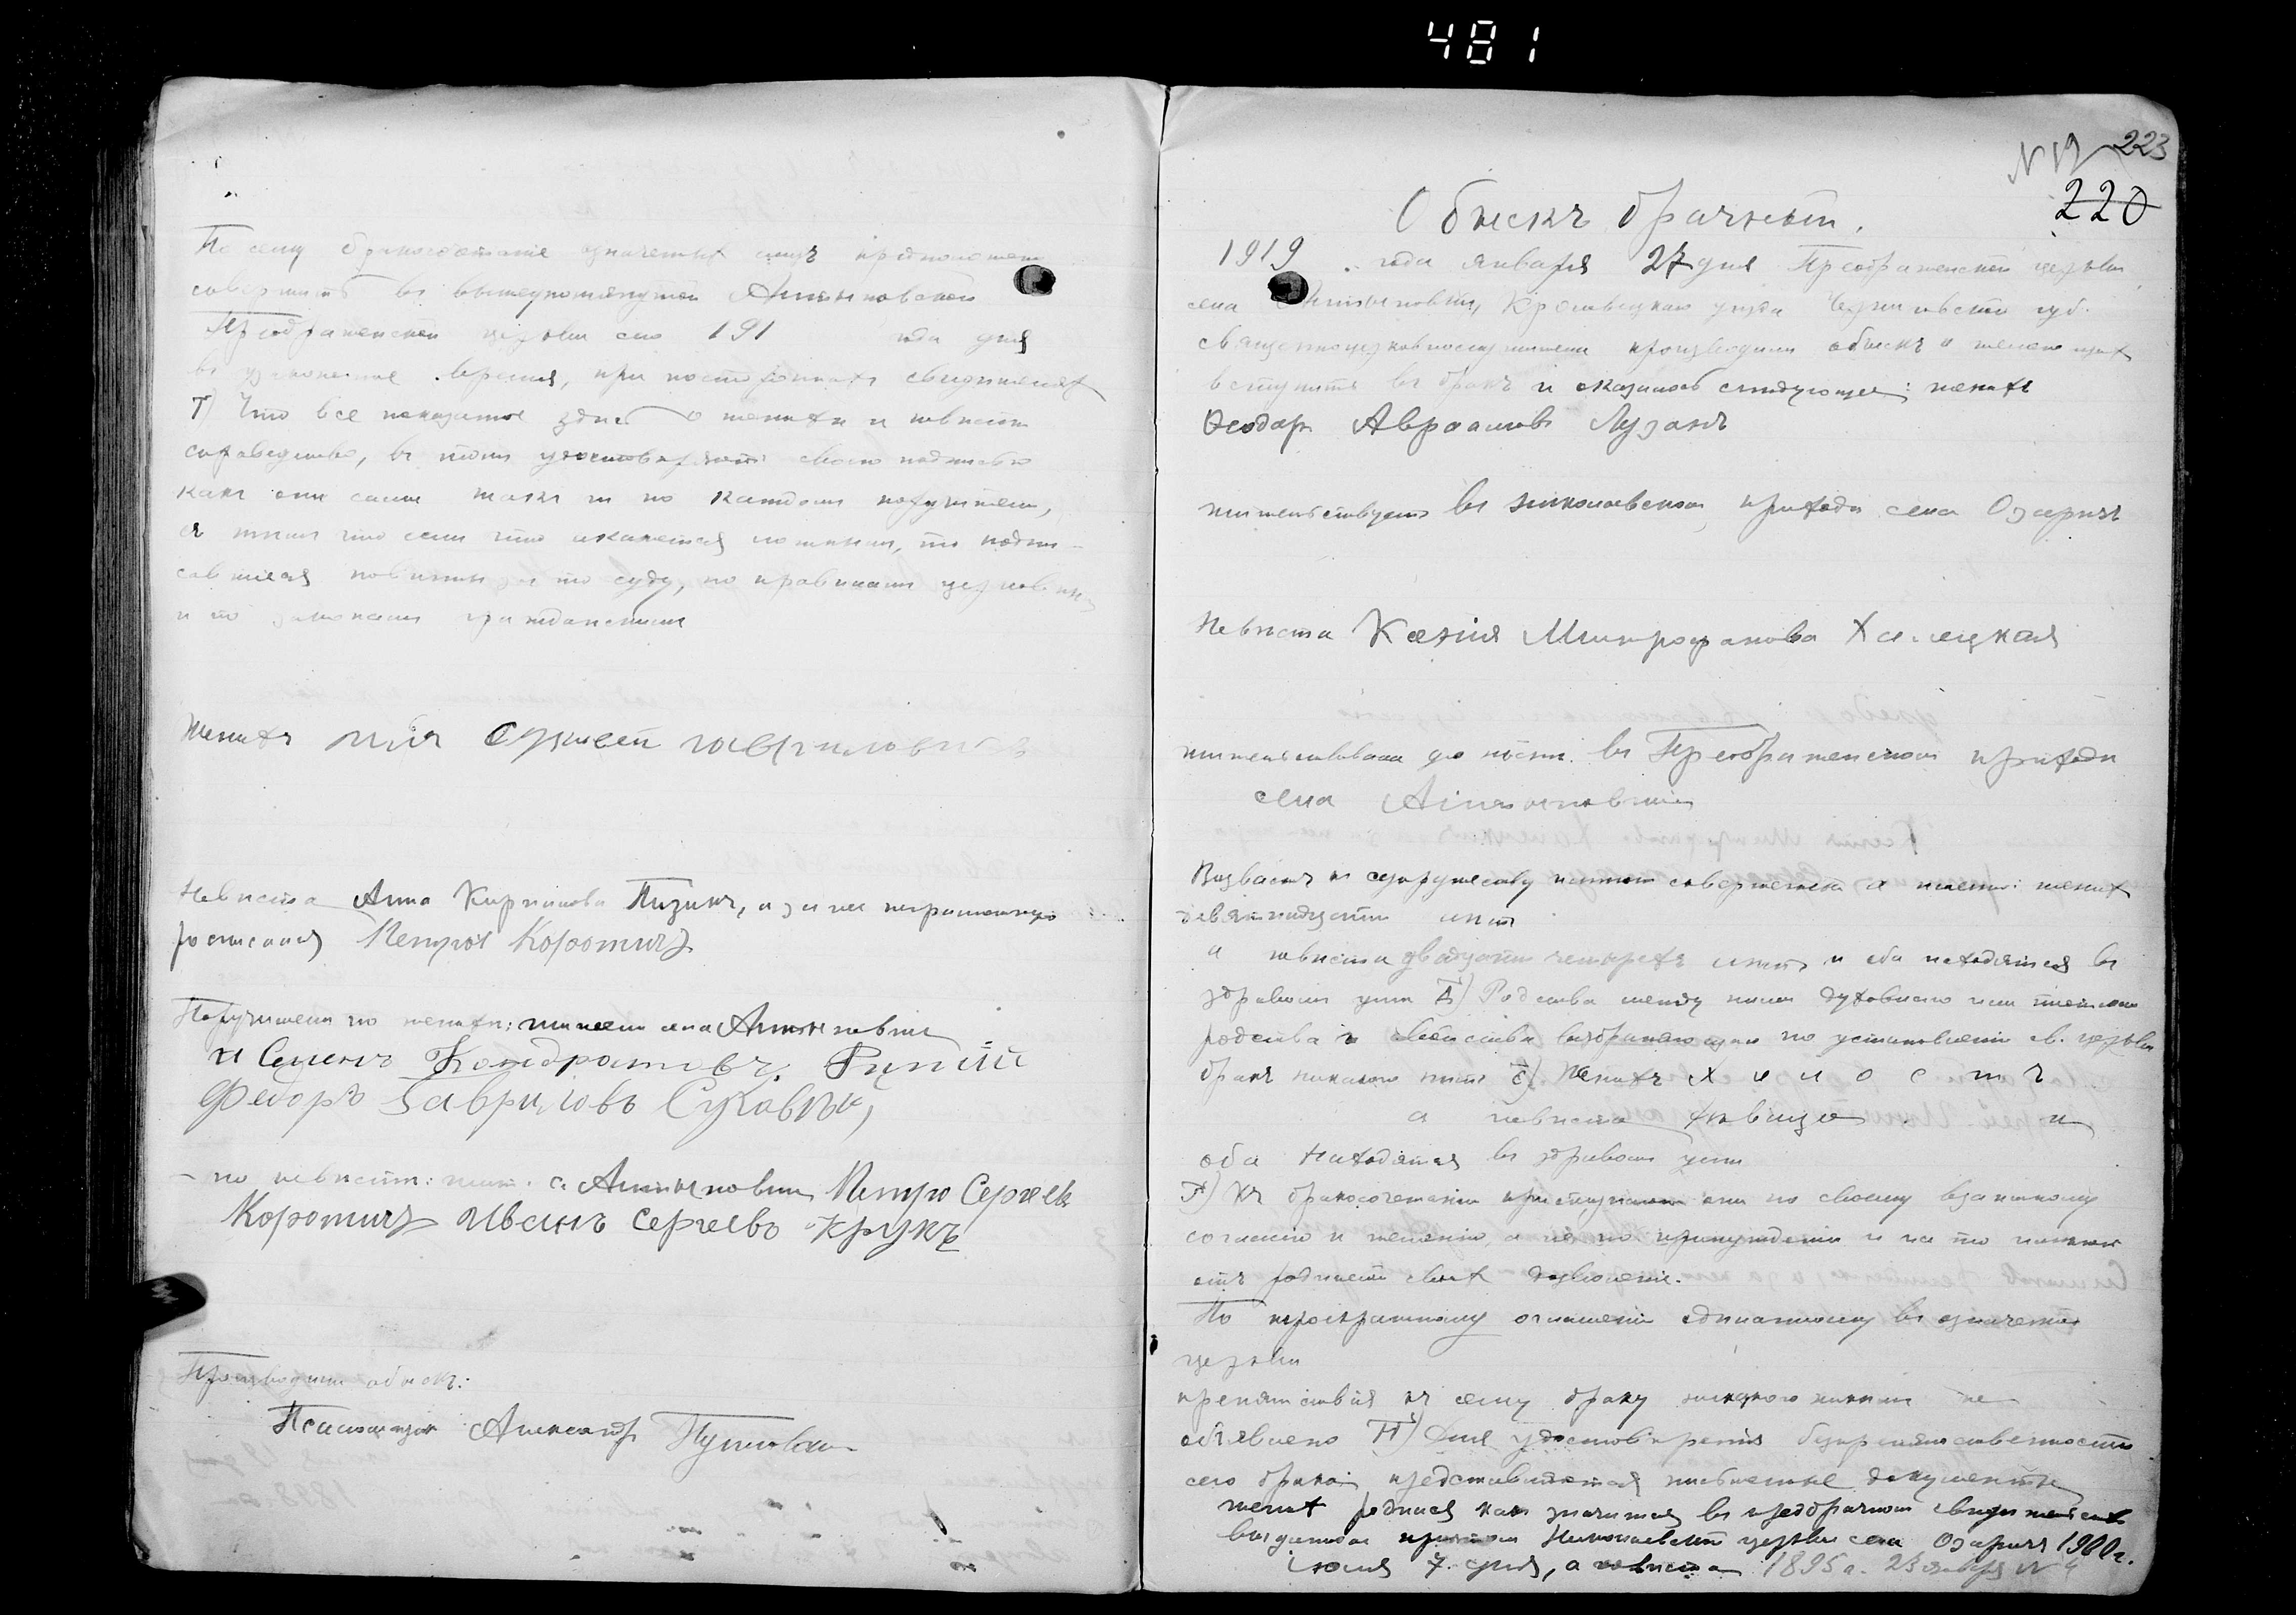 481
По сему бракосочетание означенных лицъ предположено
совершить въ вышеупомянутой
Преображенской церкви сего 191 года дня
въ узаконенное время, при постороннихъ свидетеляхъ
Т) Что все показанное здесь о женихе и невесте
справедливо, въ томъ удостоверяютъ своею подписью
какъ они сами такъ и по каждомъ поручители,
съ темъ что если что окажется ложнымъ, то подпи-
савшиеся повинны за то суду, по правиламъ церковнымъ
и по законамъ гражданскимъ
Женихъ
Невеста Анна Пизикъ, а за нее неграмотную
росписался Петро Коротичъ
Поручители по женихе: жители села
и Семенъ Кондратовъ
Федоръ Гавриловъ
по невесте: жит. с. Петро Сергеев
Коротичъ Иванъ Сергеевъ Крукъ
Производили обыскъ:
Псаломщик Александр
N 12 223
220
Обыскъ брачный.
1919 года января 27 дня Преображенской церкви
села Кролевецкаго уезда Черниговской губ.
священноцерковнослужители производили обыскъ о желающих
вступить въ бракъ и оказалось следующее: женихъ
Феодоръ Авраамовъ Лузанъ
жительствуетъ въ Николаевскомъ приходе села Озаричъ
Невеста Ксенія Митрофанова Халецкая
жительствовала до ныне въ Преображенскомъ приходе
села
Возрастъ къ супружеству имеют совершенный а именно: женихъ
девятнадцати летъ
а невеста двадцати четырехъ летъ и оба находятся въ
здравомъ уме Д) Родства между ними духовного или плотского
родства и свойства возбраняющаго по установленію св. церкви
бракъ никакого нетъ Е) Женихъ х о л о с т ъ
а невеста девица и
оба находятся въ здравомъ уме
къ бракосочетанію приступаютъ они по своему взаимному
согласію и желанію, а не по принужденію и на то имеютъ
отъ родителей своихъ дозволеніе.
По троекратному оглашенію сделанному въ означенной
церкви
препятствія къ сему браку никакого никемъ не
объявлено И) Для удостоверенія безпрепятственности
сего брака представляются письменные документы
жених родился какъ значится въ предбрачномъ свидетельстве
выданном причтомъ Николаевской церкви села Озаричъ 1900 г.
7 дня, а невеста 1895 г. 23 января N 4